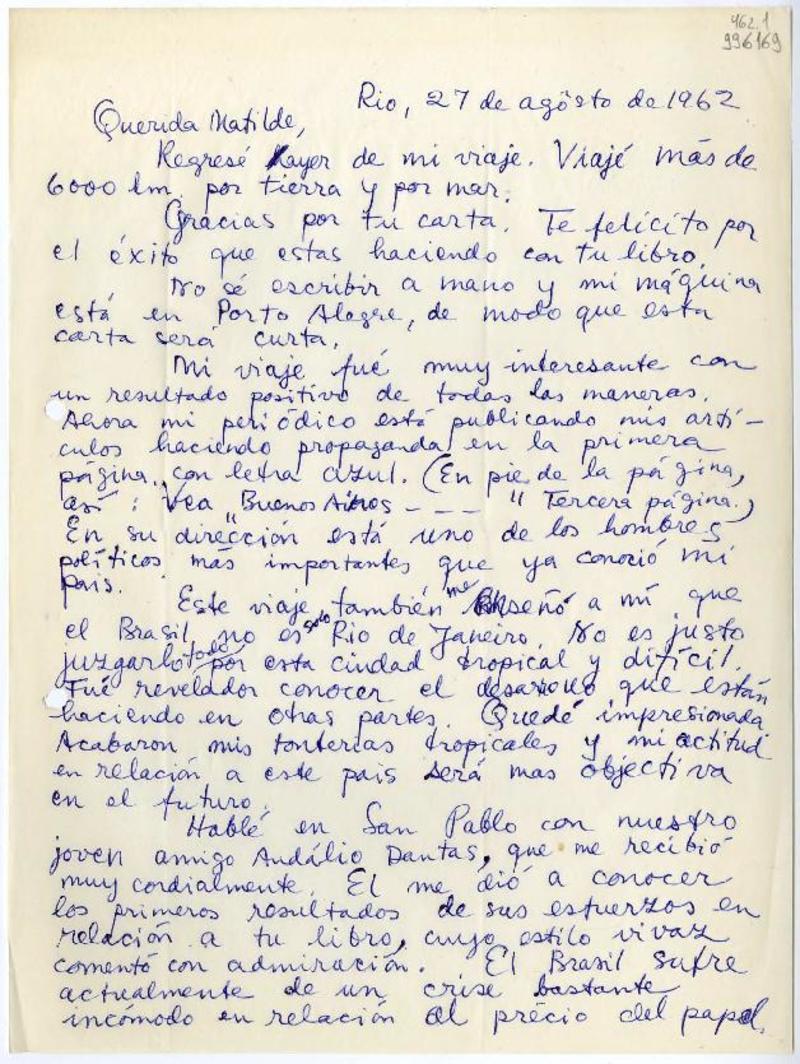 462.1
996169
Rio, 27 de agosto de 1962
Querida Matilde,
Regresé ayer de mi viaje. Viajé más de
6000 km. por tierra y por mar.
Gracias por tu carta. Te felicito por
el éxito que estas haciendo con tu libro.
No sé escribir a mano y mi máquina
está en Porto Alegre, de modo que esta
carta será curta.
Mi viaje fué muy interesante con
un resultado positivo de todas las maneras.
Ahora mi periódico está publicando mis artí-
culos haciendo propaganda en la primera
página, con letra azul. (En pie de la página,
así: Vea "Buenos Aires - - - " Tercera página.)
En su dirección está uno de los hombres
políticos más importantes que ya conoció mi
pais.
Este viaje también me enseñó a mí que
el Brasil no es solo Rio de Janeiro. No es justo
juzgarlo todo por esta ciudad tropical y difícil.
Fué revelador conocer el desarrollo que están
haciendo en otras partes. Quedé impresionada
Acabaron mis tonterias tropicales y mi actitud
en relación a este pais será mas objectiva
en el futuro.
Hablé en San Pablo con nuestro
joven amigo Audálio Dantas, que me recibió
muy cordialmente. El me dió a conocer
los primeros resultados de sus esfuerzos en
relación a tu libro, cuyo estilo vivaz
comentó con admiración. El Brasil sufre
actualmente de un crise bastante
incómodo en relación al précio del papel.